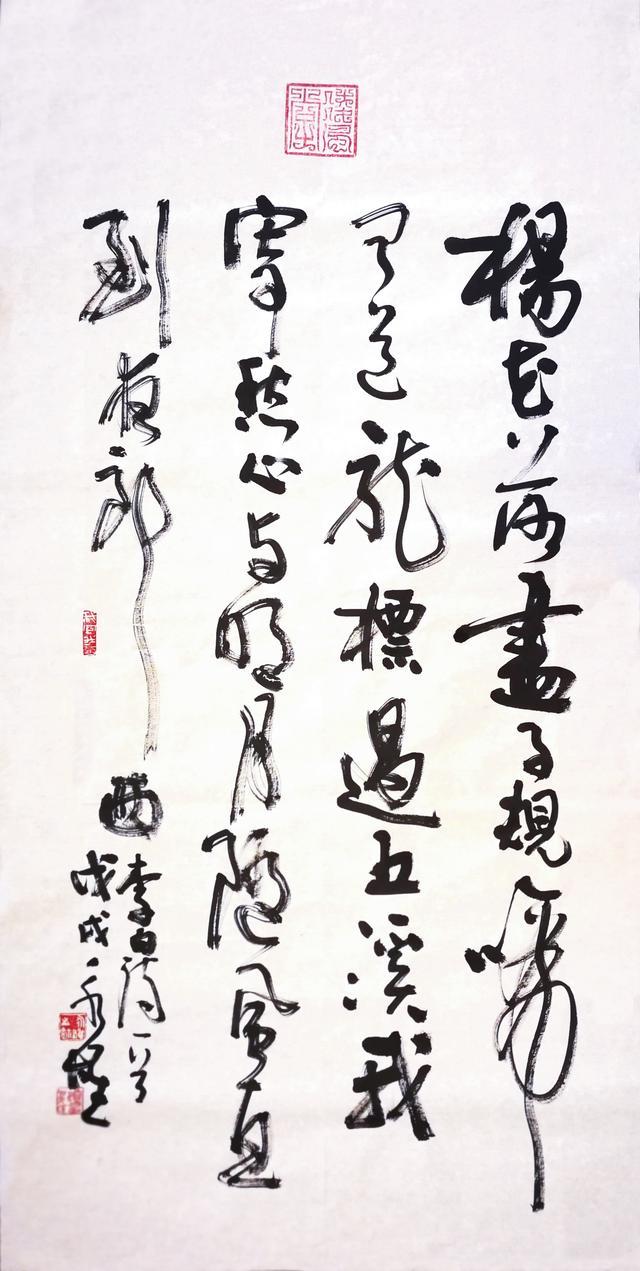 楊花落盡子規啼
聞道龍標過五溪我
寄愁心与明月隨風直
到夜郎西
李白詩一首
戊戌